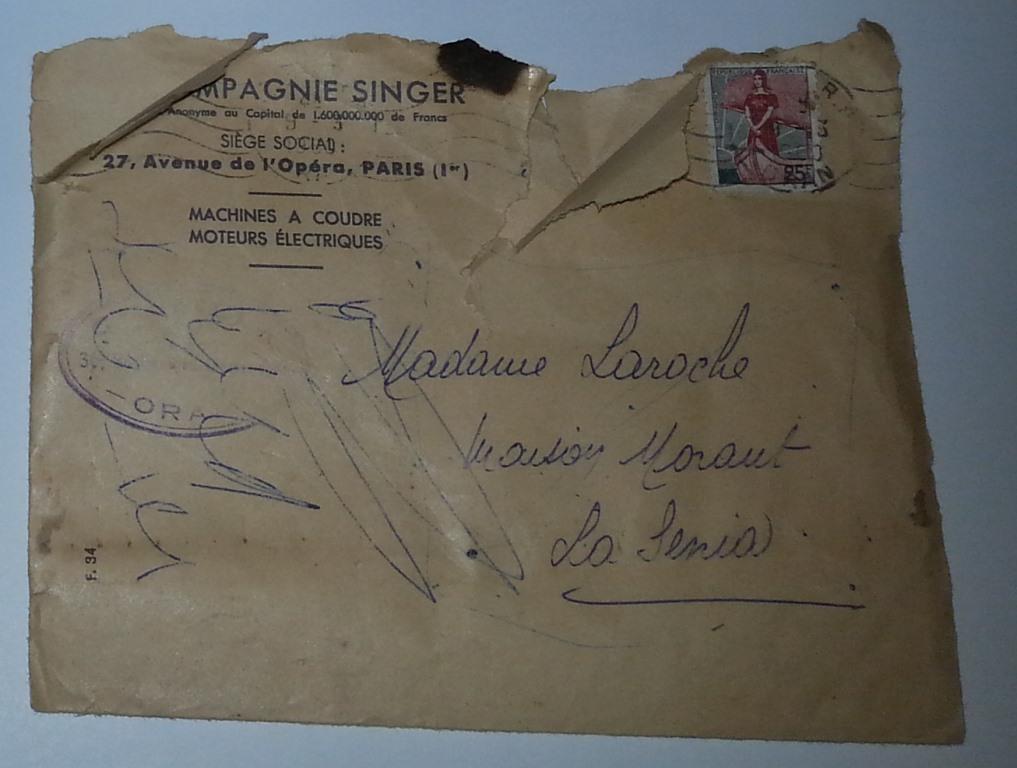 MPAGNIE SINGER
Anonyme au Capital de 1.600.000.000 de Francs
SIÈGE SOCIAL :
27, Avenue de l'Opéra, PARIS (Iᵉʳ)
MACHINES A COUDRE
MOTEURS ÉLECTRIQUES
REPUBLIQUE FRANÇAISE
25F
ORA
Madame Laroche
maison Morant
La Senia
F. 34